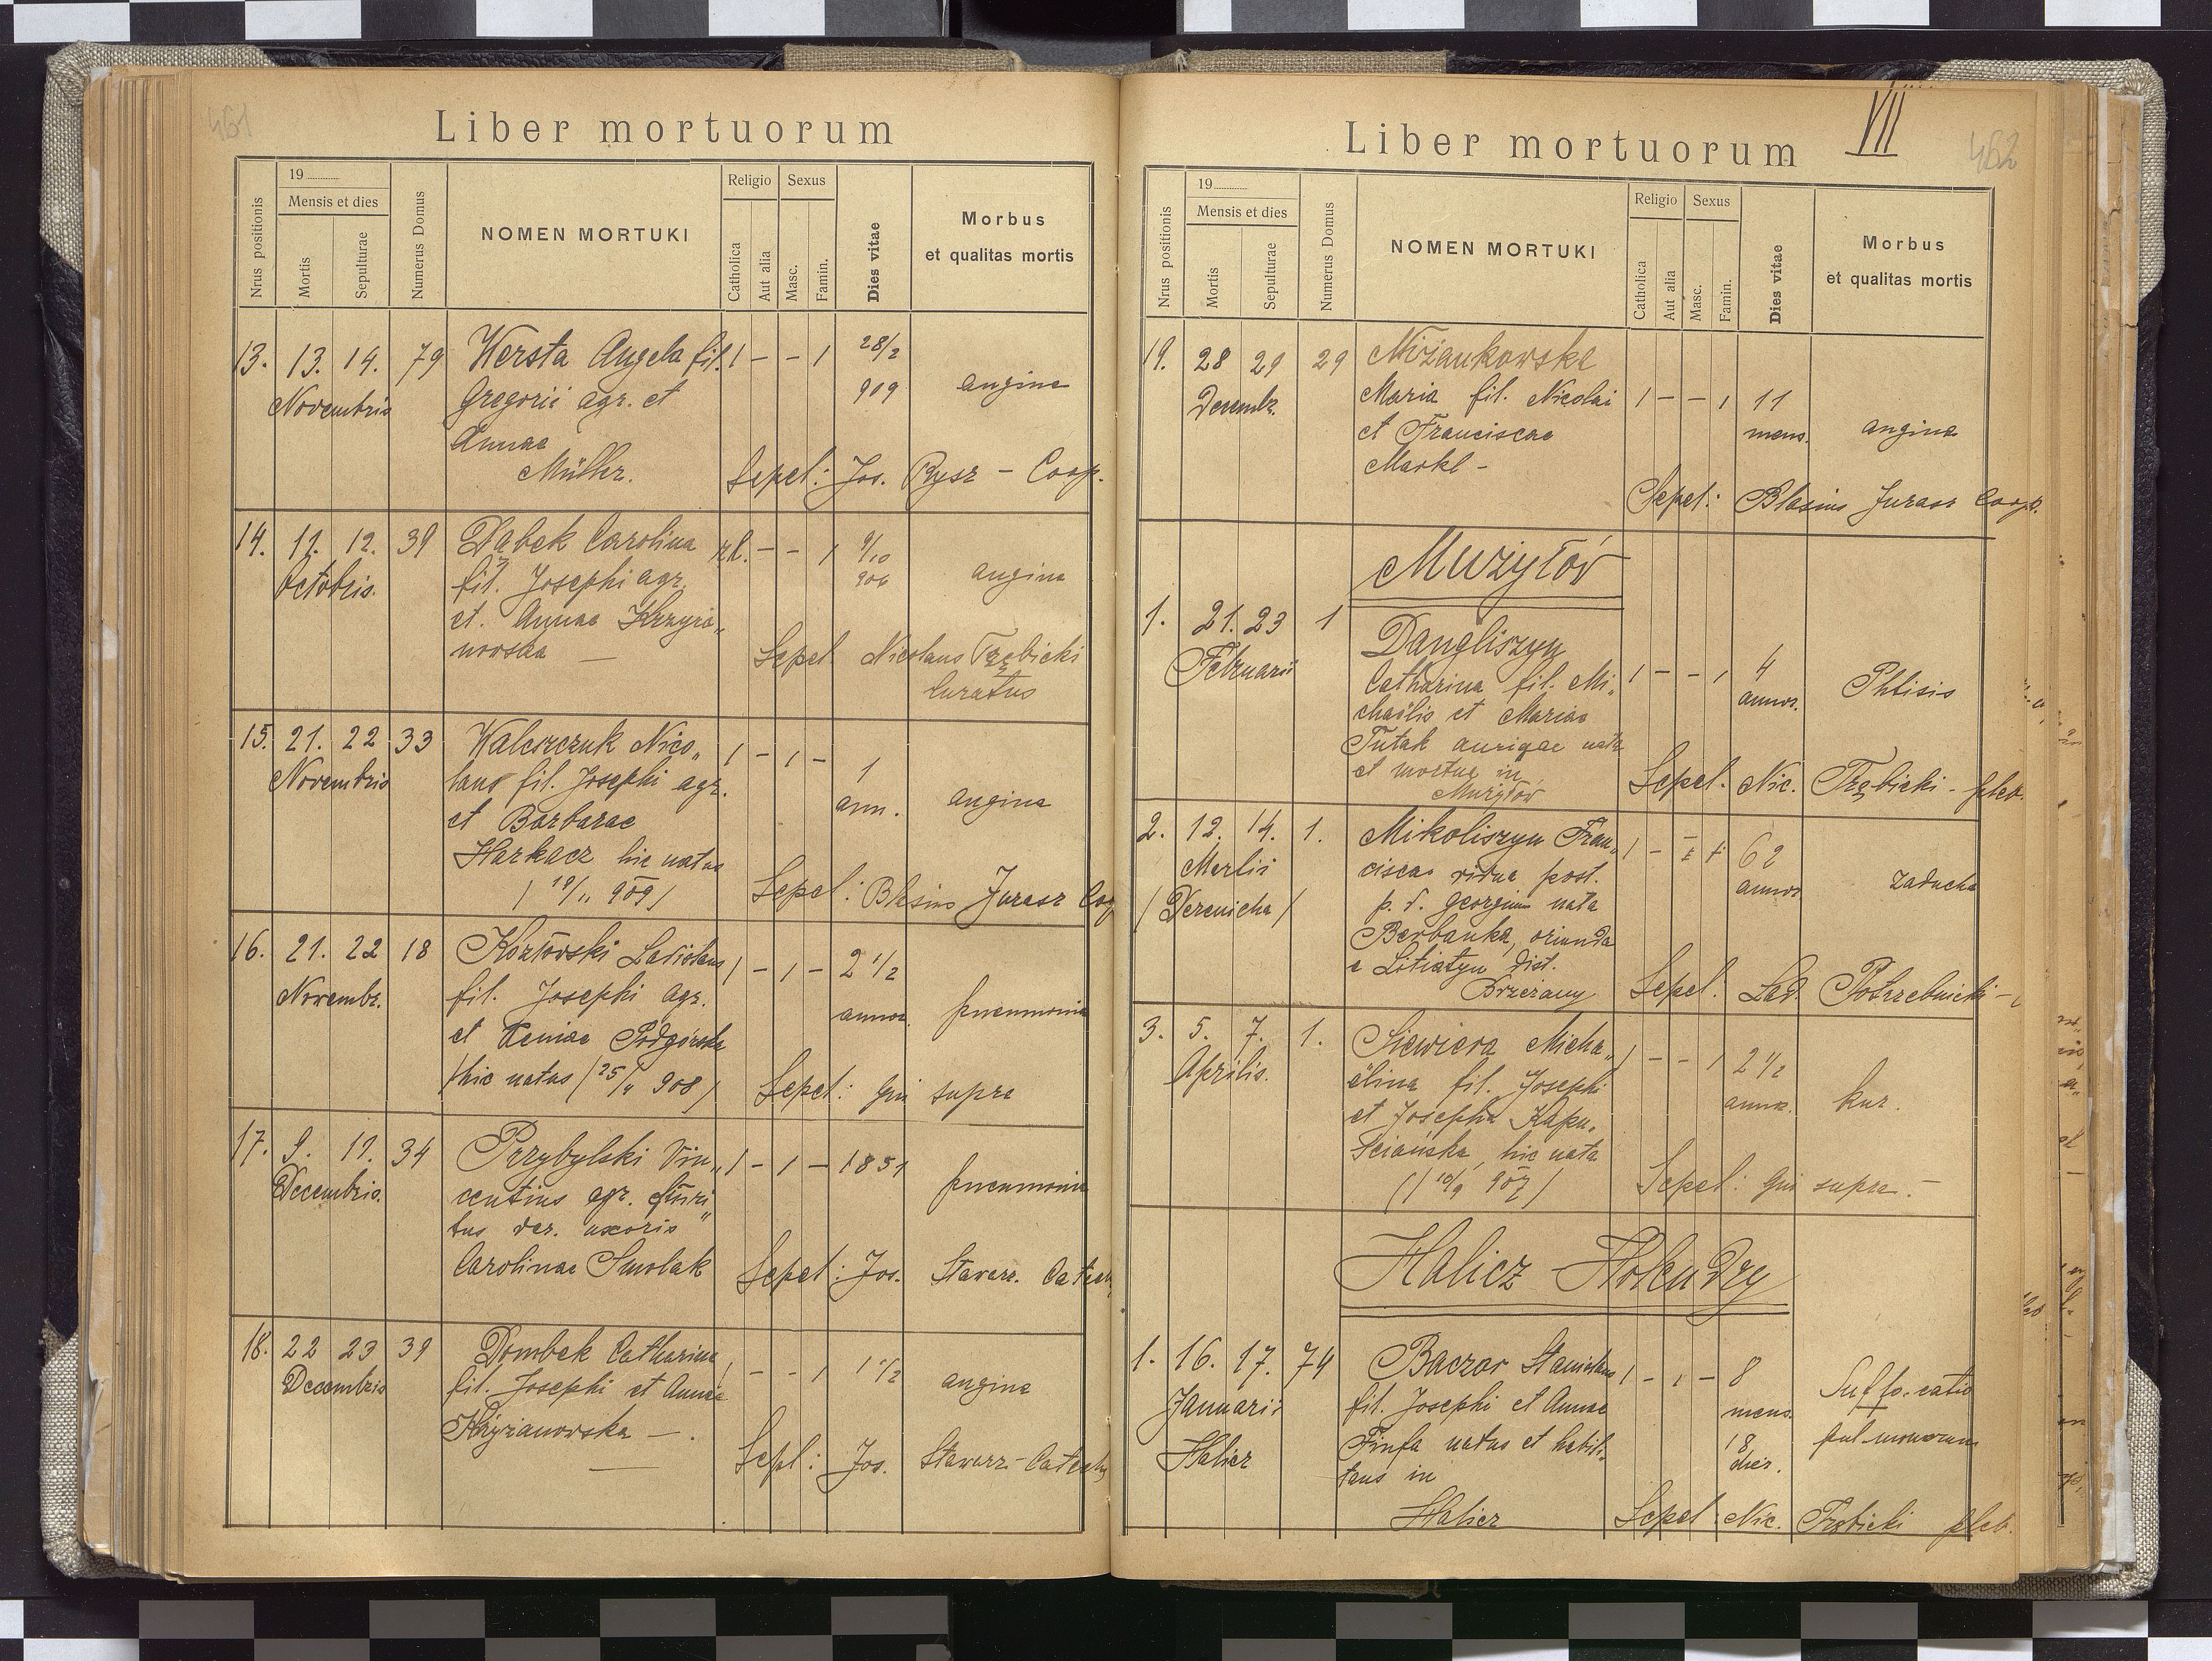 461
Liber mortuorum
Nrus positionis
19
Mensis et dies
Mortis
Sepulturae
Numerus Domus
NOMEN MORTUKI
Religio
Catholica
Aut alia
Sexus
Masc.
Famin.
Dies vitae
Morbus
et qualitas mortis
13. 13. 14. 79 Wersta Angela fil. 1 – – 1 28/2
Novembris Gregorii agr. et 909 angina
Annae
Müller. Sepel: Jos. Rysz – Coop.
14. 11. 12. 39 Dąbek Carolina r.l. – – 1 9/10
Octobris. fil. Josephi agr. 906 angina
et. Annae Krzyża„
nowska — Sepel. Nicolaus Trzębicki
Curatus
15. 21. 22 33 Waleszczuk Nico„ 1 – 1 –
Novembris laus fil. Josephi agr. 1
et Barbarae ann. angina
Harkacz hic natus
/ 19/11 909 / Sepel: Blasius Jurasz Coop
16. 21. 22 18 Kozłowski Ladislaus 1 – 1 – 2 1/2
Novembr. fil. Josephi agr. annor. pneumonia
et Xeniae Podgórska
/hic natus / 25/4 908 / Sepel: qui supra
17. 9. 11. 34 Przybylski Vin„ 1 – 1 – 1851
Decembris. centius agr. mari„ pneumonia
tus der. uxoris
Carolinae Smolak Sepel: Jos. Stawarz. Catech
18. 22 23 39 Dombek Catharina 1 – – 1 1 1/2
Decembris fil. Josephi et Annae angina
Krzyżanowska —.
Sepl: Jos. Stawarz – Catech
VII
462
Liber mortuorum
Nrus positionis
19
Mensis et dies
Mortis
Sepulturae
Numerus Domus
NOMEN MORTUKI
Religio
Catholica
Aut alia
Sexus
Masc.
Famin.
Dies vitae
Morbus
et qualitas mortis
19. 28 29 29 Niżankowska
Decembr. Maria fil. Nicolai 1 – – 1 11
et Franciscae mens. angina
Markl –
Sepel: Blasius Jurasz Coop.
Mużyłów
1. 21. 23 1 Dangliszyn
Februarii Catharina fil. Mi„ 1 – – 1 4
chaëlis et Mariae annor. Phtisis
Tutak aurigae nata
et mortua in
Mużyłów Sepel: Nic. Trzębicki – pleb.
2. 12. 14. 1. Mikoliszyn Fran„ 1 – 62
Martii cisca vidua post. annor zaducha
/ Derenicha / p. d. Georgium nata
Berbanka, oriunda
e Litiatyn dist.
Brzeżany Sepel: Lad. Potrzebnicki –
3. 5. 7. 1. Siewiera Micha„ 1 – – 1 2 1/2
Aprilis. ëlina fil. Josephi annor. kur.
et Josepha Kapu„
ściańska, hic nata
/ 10/9 907 / Sepel: qui supra. –
Halicz Holendry
1. 16. 17. 74 Baczor Stanislaus 1 – 1 – 8
Januarii fil. Josephi et Annae mens. Suffocatio
Halicz Finfa natus et habi„ 18 pulmonorum
tans in dier.
Halicz Sepel: Nic. Trzębicki pleb.